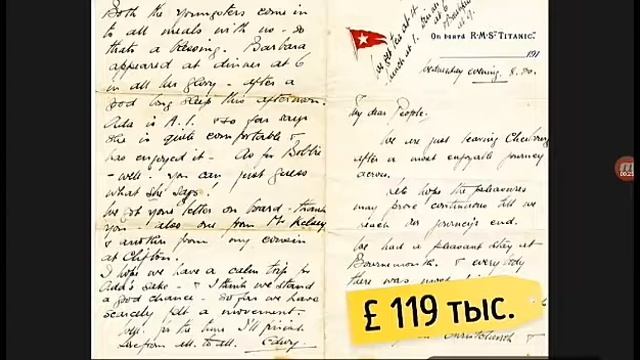 Both the youngsters come in
to all meals with us - so
thats a blessing. Barbara
appeared at dinner at 6
in all her glory - after a
good long sleep this afternoon.
Ada is A.1. & so far says
she is quite comfortable &
has enjoyed it - As for Bobbie
- well - you can just guess
what she says!
We got your letter on board - thank
you - also one from Mr Kelsey
& another from my cousin
at Clifton.
I hope we have a calm trip for
Ada's sake - & I think we stand
a good chance - so far we have
scarcely felt a movement.
Well - for the time I'll finish
Love from all to all.
On board R.M.S. "TITANIC".
191
Wednesday evening. 8.30.
My dear People.
We are just leaving Cherbourg
after a most enjoyable journey
across.
Lets hope the pleasures
may prove continuous till we
reach our journey's end.
We had a pleasant stay at
Bournemouth. & everybody
there was most
£ 119 тыс.
Christchurch &
00:25